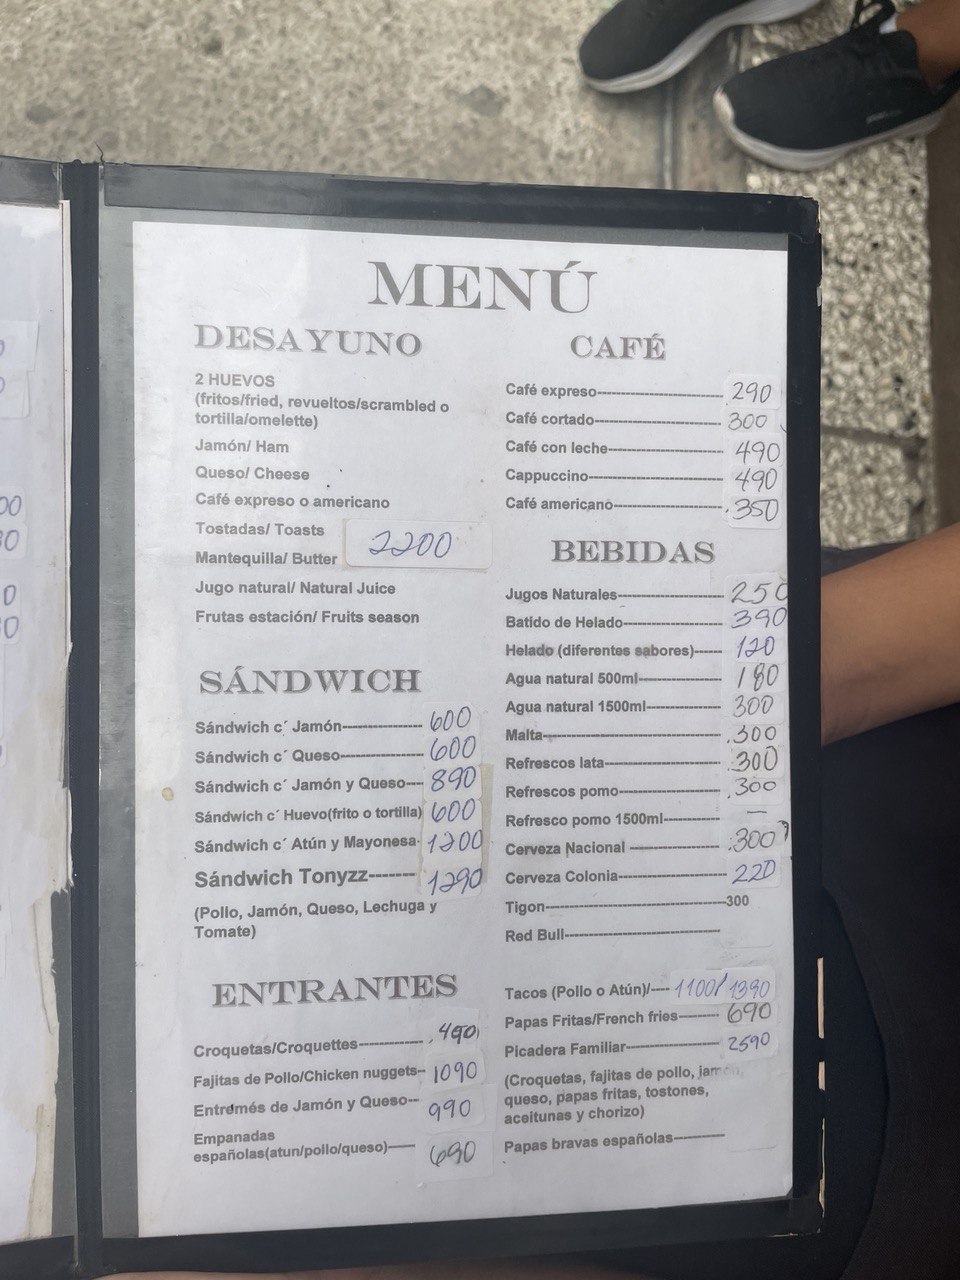 MENÚ
DESAYUNO
2 HUEVOS
(fritos/fried, revueltos/scrambled o
tortilla/omelette)
Jamón/ Ham
Queso/ Cheese
Café expreso o americano
Tostadas/ Toasts
Mantequilla/ Butter 2200
Jugo natural/ Natural Juice
Frutas estación/ Fruits season
SÁNDWICH
Sándwich c´ Jamón----------------- 600
Sándwich c´ Queso----------------- 600
Sándwich c´ Jamón y Queso--- 890
Sándwich c´ Huevo(frito o tortilla) 600
Sándwich c´ Atún y Mayonesa- 1200
Sándwich Tonyzz------- 1290
(Pollo, Jamón, Queso, Lechuga y
Tomate)
ENTRANTES
Croquetas/Croquettes------------- 490
Fajitas de Pollo/Chicken nuggets-- 1090
Entremés de Jamón y Queso-- 990
Empanadas
españolas(atun/pollo/queso)----- 690
CAFÉ
Café expreso-------------------------- 290
Café cortado-------------------------- 300
Café con leche----------------------- 490
Cappuccino--------------------------- 490
Café americano---------------------- 350
BEBIDAS
Jugos Naturales--------------------- 250
Batido de Helado-------------------- 390
Helado (diferentes sabores)------ 120
Agua natural 500ml----------------- 180
Agua natural 1500ml--------------- 300
Malta----------------------------------- 300
Refrescos lata----------------------- 300
Refrescos pomo-------------------- 300
Refresco pomo 1500ml------------ —
Cerveza Nacional ------------------ 300
Cerveza Colonia-------------------- 220
Tigon-----------------------------------300
Red Bull-------------------------------
Tacos (Pollo o Atún)/---- 1100/ 1390
Papas Fritas/French fries-------- 690
Picadera Familiar------------------- 2590
(Croquetas, fajitas de pollo, jamón,
queso, papas fritas, tostones,
aceitunas y chorizo)
Papas bravas españolas----------